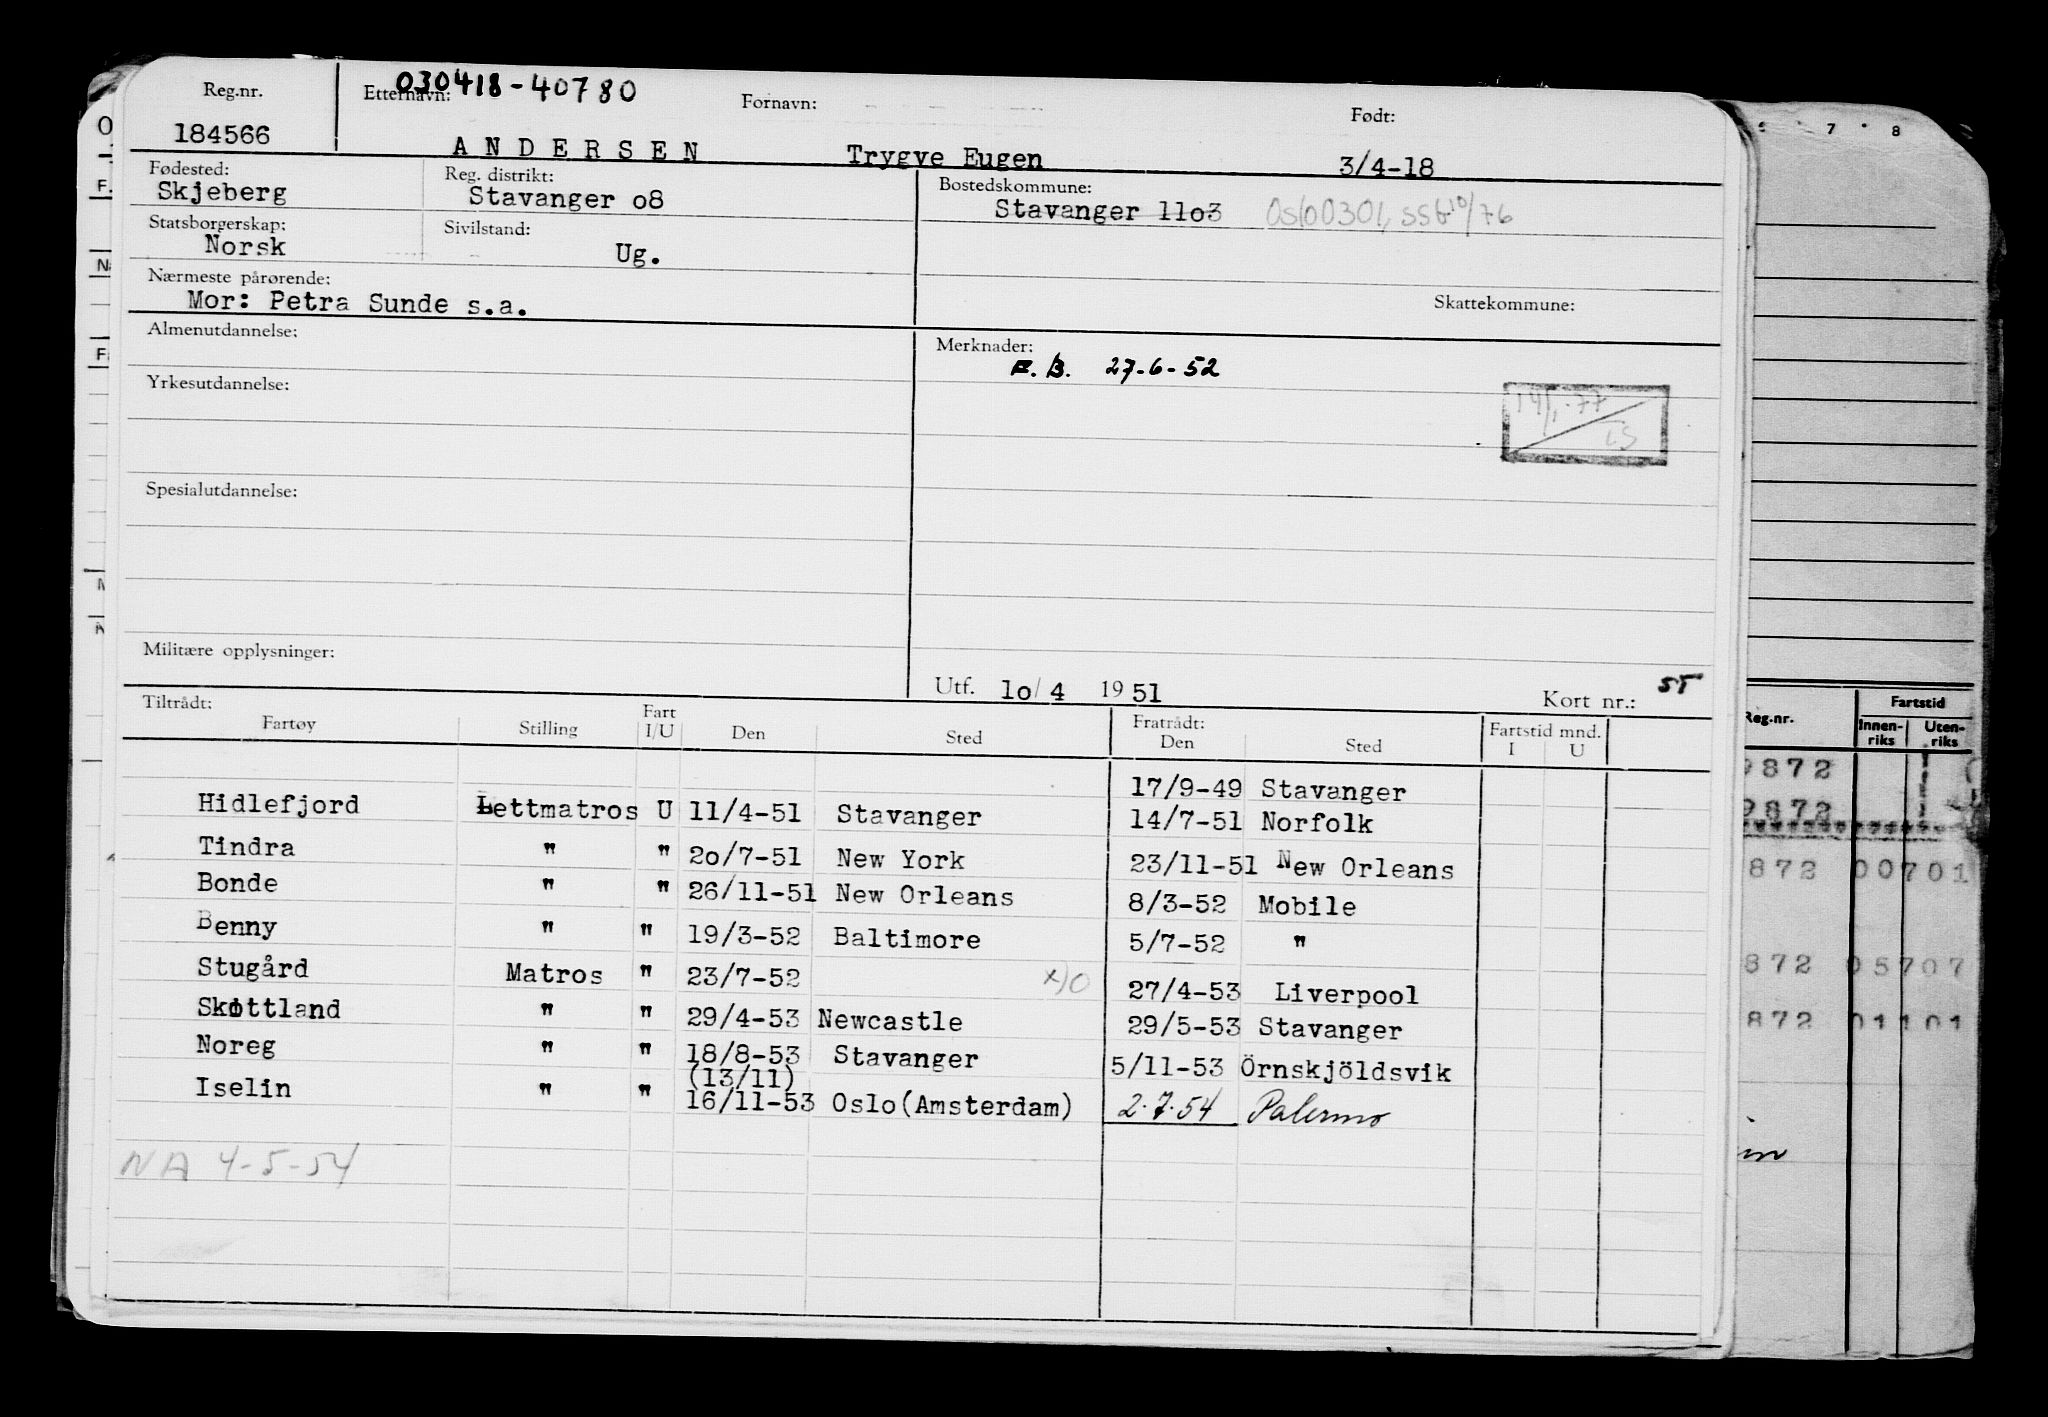 Reg.nr. Etternavn: 030418-40780 Fornavn: Født:
184566 ANDERSEN Trygve Eugen 3/4-18
Fødested: Reg. distrikt: Bostedskommune:
Skjeberg Stavanger o8 Stavanger 11o3 Oslo 0301,
Statsborgerskap: Sivilstand:
Norsk Ug.
Nærmeste pårørende: Skattekommune:
Mor: Petra Sunde s.a.
Almenutdannelse: Merknader:
F.B. 27-6-52
Yrkesutdannelse:
Spesialutdannelse:
Militære opplysninger:
Utf. 1o/4 1951 Kort nr.: 55
Tiltrådt: Fart Fratrådt: Fartstid mnd.
Fartøy Stilling I/U Den Sted Den Sted I U
17/9-49 Stavanger
Hidlefjord Lettmatros U 11/4-51 Stavanger 14/7-51 Norfolk
Tindra " " 2o/7-51 New York 23/11-51 New Orleans
Bonde " " 26/11-51 New Orleans 8/3-52 Mobile
Benny " " 19/3-52 Baltimore 5/7-52 "
Stugård Matros " 23/7-52 x)O 27/4-53 Liverpool
Skottland " " 29/4-53 Newcastle 29/5-53 Stavanger
Noreg " " 18/8-53 Stavanger 5/11-53 Örnskjöldsvik
(13/11)
Iselin " " 16/11-53 Oslo(Amsterdam) 2.7.54 Palermo
NA 4-5-54
7 8
Reg.nr. Fartstid
Innen-riks Uten-riks
9872
9872
872 00701
872 05707
872 01101